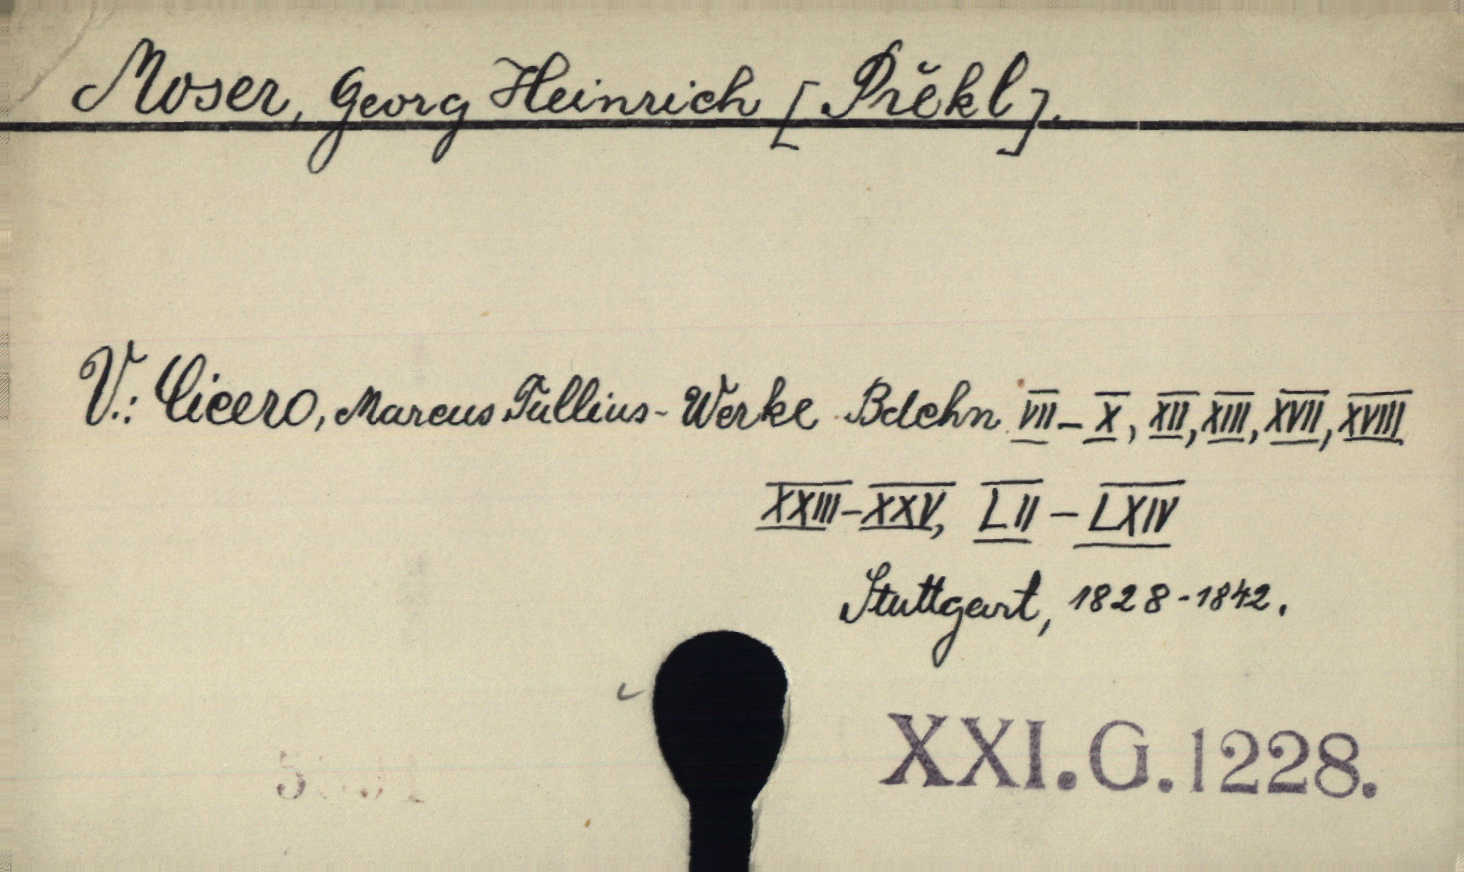 Moser, Georg Heinrich [Přěkl].
V.: Cicero, Marcus Tullius - Werke Bdchn VII - X, XII, XIII, XVII, XVIII
XXIII - XXV, LII - LXIV
Stuttgart, 1828-1842.
XXI.G.1228.